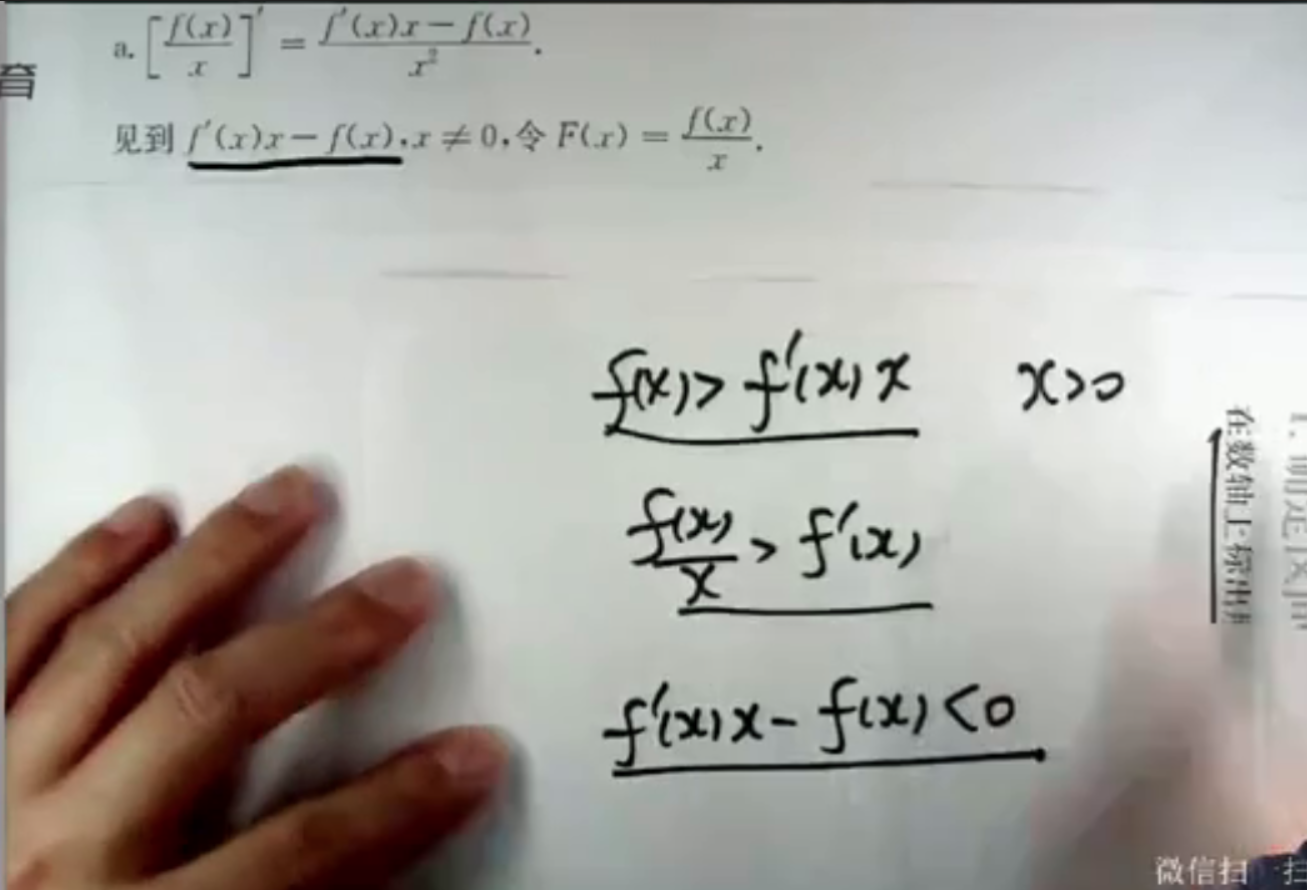 a. [f(x)/x]′ = (f′(x)x − f(x))/x².
育
见到 f′(x)x − f(x), x ≠ 0, 令 F(x) = f(x)/x.
f(x) > f′(x) x    x>0
f(x)/x > f′(x)
f′(x) x − f(x) < 0
在数轴上标出
微信扫一扫